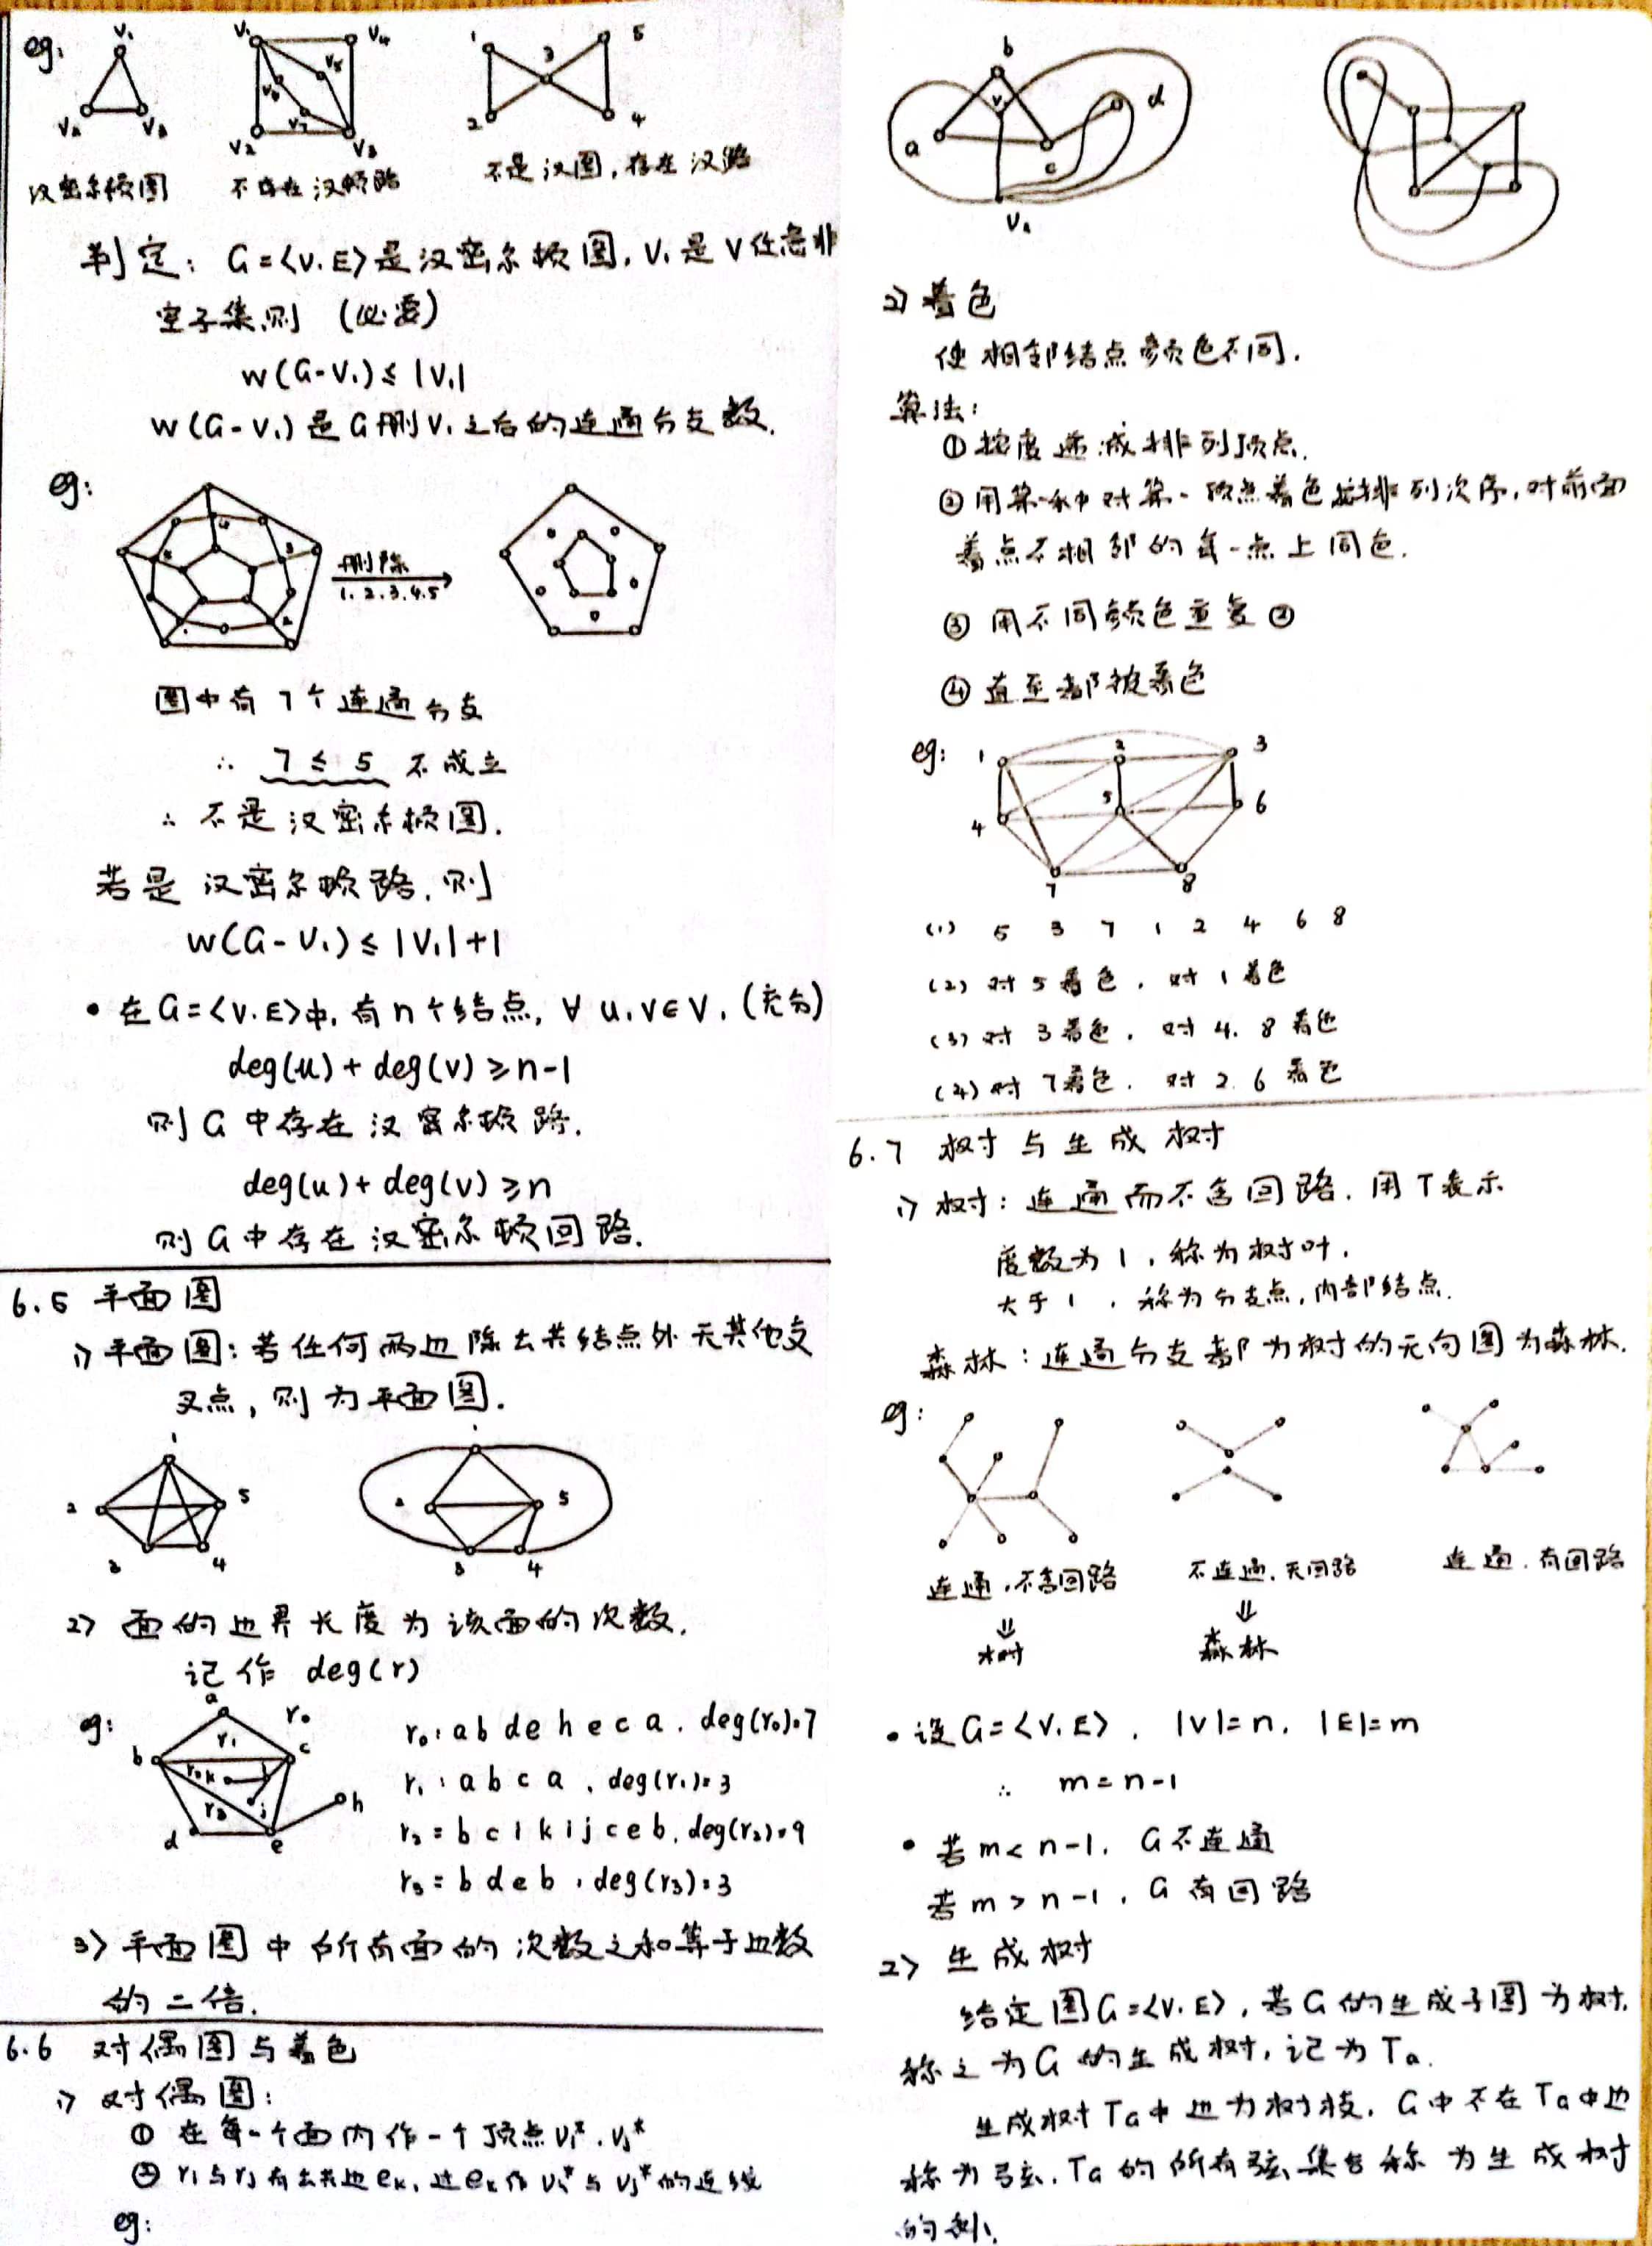 eg:
V₁
V₂ V₃
V₁ V₄
V₅
V₆
V₇
V₂ V₃
1 5
3
2 4
汉密尔顿图
不存在汉顿路
不是汉图,存在汉路
判定: G=<V.E>是汉密尔顿图, V₁是V任意非
空子集,则 (必要)
W(G-V₁)≤|V₁|
W(G-V₁)是G删V₁之后的连通分支数.
eg:
删除
1.2.3.4.5
图中有7个连通分支
∴ 7≤5 不成立
∴ 不是汉密尔顿图.
若是汉密尔顿路,则
W(G-V₁)≤|V₁|+1
• 在G=<V.E>中,有n个结点, ∀ u,v∈V, (充分)
deg(u)+deg(v)≥n-1
则G中存在汉密尔顿路.
deg(u)+deg(v)≥n
则G中存在汉密尔顿回路.
6.5 平面图
1> 平面图:若任何两边除去共结点外无其他交
叉点,则为平面图.
1
2 5
3 4
1
2 5
3 4
2> 面的边界长度为该面的次数.
记作 deg(r)
eg:
a
r₀
r₁
b c
r₂ k i
r₃ j
h
d e
r₀: a b d e h e c a . deg(r₀)=7
r₁: a b c a , deg(r₁)=3
r₂= b c i k i j c e b, deg(r₂)=9
r₃= b d e b , deg(r₃)=3
3> 平面图中所有面的次数之和等于边数
的二倍.
6.6 对偶图与着色
1> 对偶图:
① 在每一个面内作一个顶点Vi*.Vj*
② ri与rj有公共边eₖ,过eₖ作Vi*与Vj*的连线
eg:
b
d
V
a
c
2> 着色
使相邻结点颜色不同.
算法:
①按度递减排列顶点.
②用第一种对第一顶点着色按排列次序,对前面
着点不相邻的每一点上同色.
③ 用不同颜色重复②
④ 直至都被着色
eg: 1 2 3
5 6
4
7 8
(1) 5 3 7 1 2 4 6 8
(2) 对5着色, 对1着色
(3) 对3着色, 对4.8着色
(4) 对7着色. 对2.6着色
6.7 树与生成树
1> 树:连通而不含回路.用T表示
度数为1,称为树叶,
大于1,称为分支点,内部结点.
森林:连通分支都为树的无向图为森林.
eg:
连通,不含回路
⇓
树
不连通,无回路
⇓
森林
连通,有回路
• 设G=<V.E>, |V|=n, |E|=m
∴ m=n-1
• 若m<n-1, G不连通
若m>n-1, G有回路
2> 生成树
给定图G=<V.E>,若G的生成子图为树.
称之为G的生成树,记为TG.
生成树TG中边为树枝,G中不在TG中边
称为弦.TG的所有弦集合称为生成树
的补.